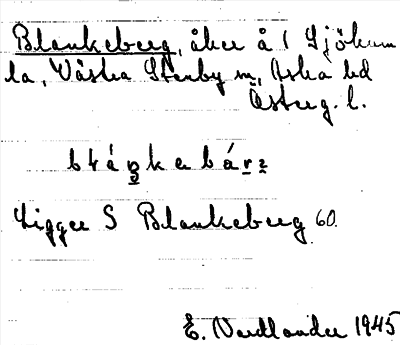 Blankeberg, åker å 1 Sjökum
la, Västra Stenby sn, Aska hd
Österg. l.
bláŋkebár
Ligger S Blankeberg 60.
E. Nordlander 1945